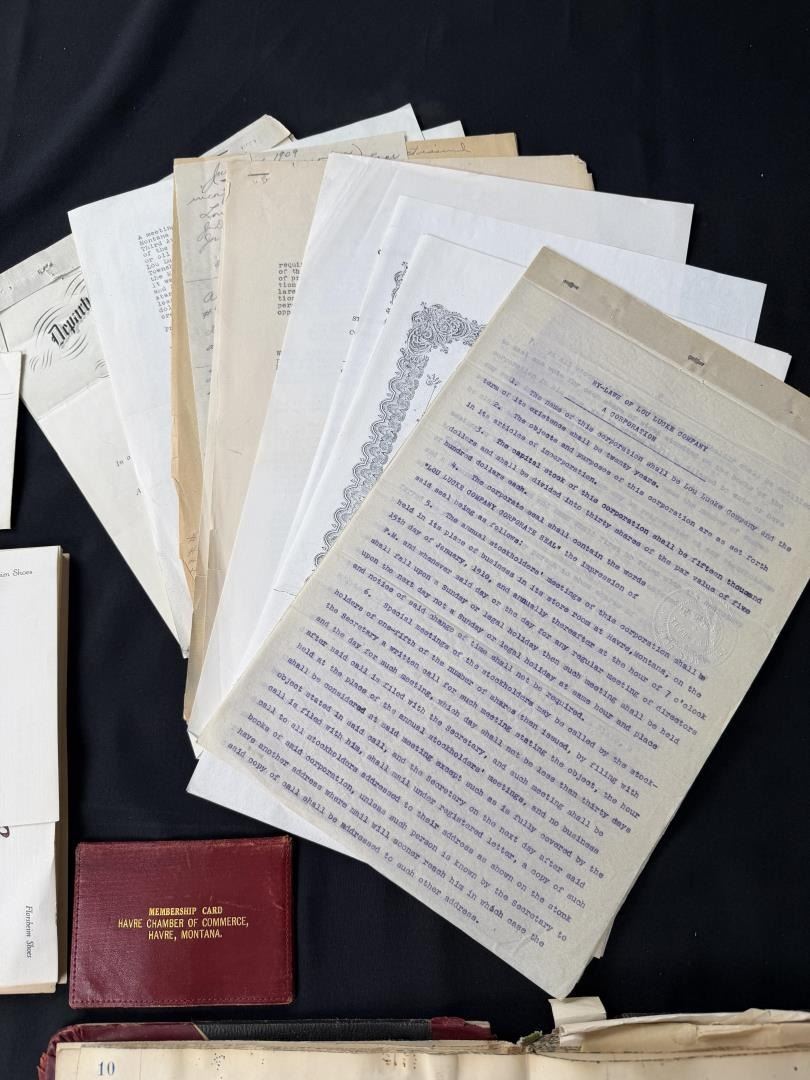 1909
Departm
A meeting
Montana
Third Av
of the
or all
Lou Lu
Townshi
the
it wa
and
star
lea
dol
ore
requi
of th
of pr
tion
lare
tion
per
opp
BY-LAWS OF LOU LUCKE COMPANY
A CORPORATION
1. The name of this corporation shall be Lou Lucke Company and the
term of its existence shall be twenty years.
2. The objects and purposes of this corporation are as set forth
in its articles of incorporation.
3. The capital stock of this corporation shall be fifteen thousand
dollars and shall be divided into thirty shares of the par value of five
hundred dollars each.
4. The corporate seal shall contain the words
"LOU LUCKE COMPANY CORPORATE SEAL" the impression of
said seal being as follows:
5. The annual stockholders' meetings of this corporation shall be
held in its place of business in its store room at Havre, Montana, on the
15th day of January, 1910, and annually thereafter at the hour of 7 o'clock
P.M. and whenever said day or the day for any regular meeting of directors
shall fall upon a Sunday or legal holiday then such meeting shall be held
upon the next day not a Sunday or legal holiday at same hour and place
and notice of said change of time shall not be required.
6. Special meetings of the stockholders may be called by the stock-
holders of one-fifth of the number of shares then issued, by filing with
the Secretary a written call for such meeting stating the object, the hour
and the day for such meeting, which day shall not be less than thirty days
after said call is filed with the Secretary, and such meeting shall be
held at the place of the annual stockholders' meetings, and no business
shall be considered at said meeting except such as is fully covered by the
object stated in said call, and the Secretary on the next day after said
call is filed with him, shall mail under registered letter, a copy of such
call to all stockholders addressed to their address as shown on the stonk
books of said corporation, unless such person is known by the Secretary to
have another address where mail will sooner reach him in which case the
said copy of call shall be addressed to such other address.
eim Shoes
Florsheim Shoes
MEMBERSHIP CARD
HAVRE CHAMBER OF COMMERCE,
HAVRE, MONTANA.
10